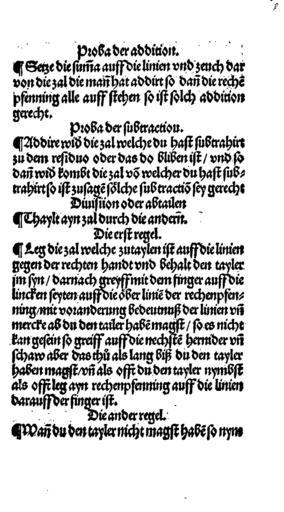 Proba der addition.
¶ Setze die sum̃a auff die linien vnd zeuch dar
von die zal die man̄ hat addirt so dan̄ die rechē
pfenning alle auff stehen so ist solch addition
gerecht.
Proba der subtraction.
¶ Addire wid die zal welche du hast subtrahirt
zu dem residuo oder das do bliben ist / vnd so
dan̄ wid kombt die zal vō welcher du hast sub-
trahirt so ist zusagē sölche subtractiō sey gerecht
Diuisiion oder abtailen
¶ Thaylt ayn zal durch die andern̄.
Die erst regel.
¶ Leg die zal welche zutaylen ist auff die linien
gegen der rechten handt vnd behalt den tayler
jm syn / darnach greyff mit dem finger auff die
lincken seyten auff die öber liniē der rechenpfen-
ning / mit voranderung bedeutnuß der linien vn̄
mercke ab du den tailer habē magst / so es nicht
kan gesein so greiff auff die nechstē hernider vn̄
schaw aber das thů als lang biß du den tayler
haben magst / vn̄ als offt du den tayler nymbst
als offt leg ayn rechenpfenning auff die linien
darauff der finger ist.
Die ander regel.
¶ Wan̄ du den tayler nicht magst habē so nym